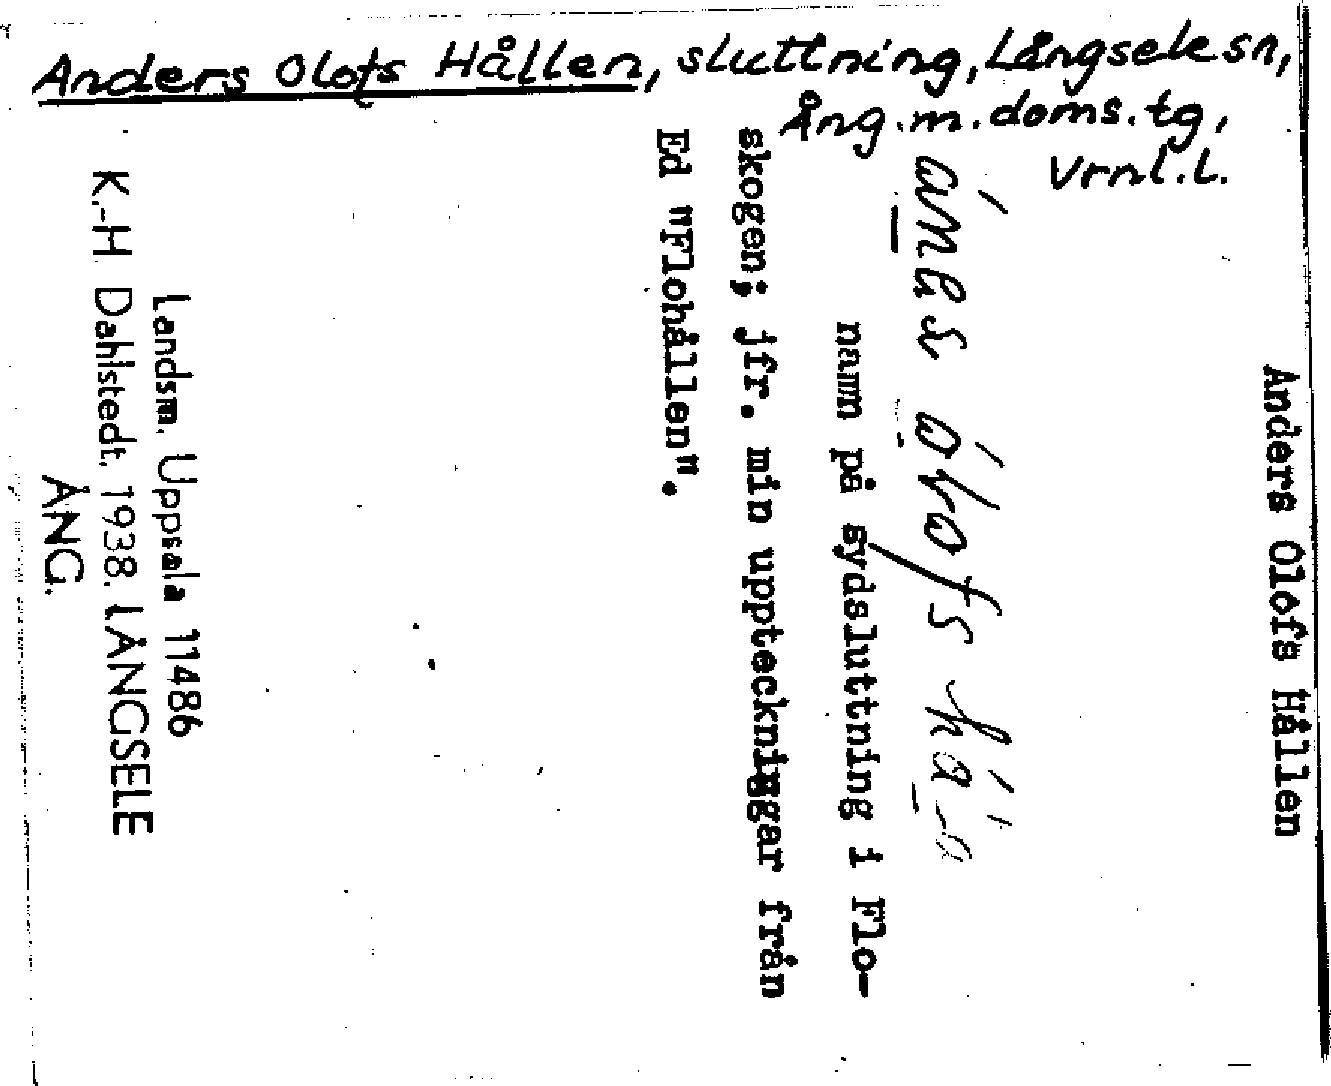 Anders Olofs Hållen, sluttning, Långsele sn,
Ång.m.doms.tg,
Vrnl.l.
Anders Olofs Hållen
namn på sydsluttning i Flo-
skogen; jfr. min uppteckningar från
Ed "Flohållen".
Landsm. Uppsala 11486
K.-H Dahlstedt. 1938. LÅNGSELE
ÅNG.